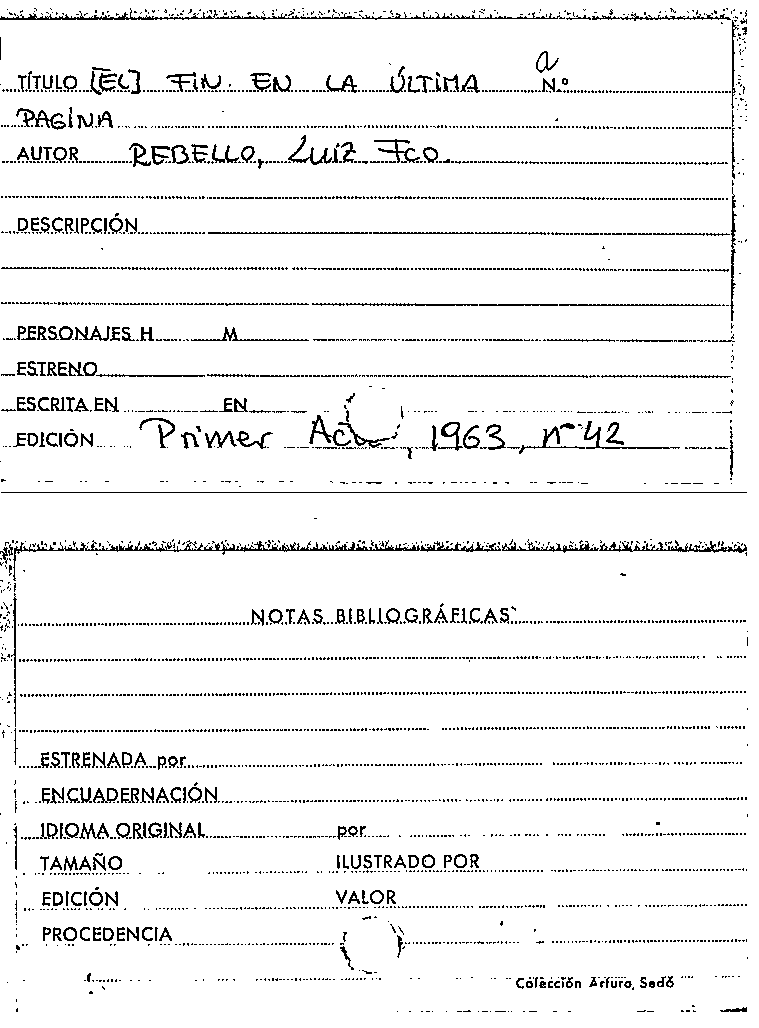 a
TÍTULO [EL] FIN. EN LA ÚLTIMA N.º
PAGINA
AUTOR REBELLO, LUIZ FCO.
DESCRIPCIÓN
PERSONAJES H M
ESTRENO
ESCRITA EN EN
EDICIÓN Primer Act, 1963, nº 42
NOTAS BIBLIOGRÁFICAS
ESTRENADA por
ENCUADERNACIÓN
IDIOMA ORIGINAL por
TAMAÑO ILUSTRADO POR
EDICIÓN VALOR
PROCEDENCIA
Colección Arturo, Sedó